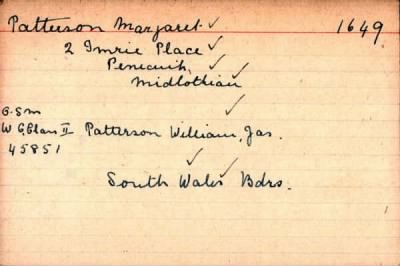 Patterson Margaret 1649
2 Imrie Place
Penicuik
Midlothian
C.S.M
W O Class II Patterson William, Jas.
45851
South Wales Bdrs.